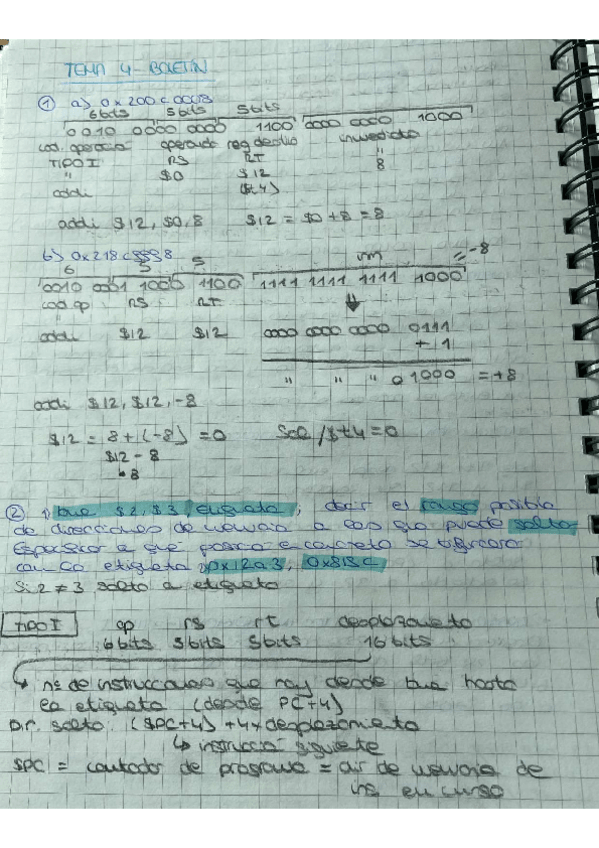 TEMA 4 - BOLETÍN
① a) 0x200c0008
6bits 5bits 5bits
0010 0000 0000 1100 0000 0000 1000
cod. operación operando reg destino inmediato
TIPO I RS RT "
" $0 $12 8
addi ($t4)
addi $12, $0, 8 $12 = $0 + 8 = 8
b) 0x218cfff8
6 5 5 inm = -8
0010 0001 1000 1100 1111 1111 1111 1000
cod op RS RT
addi $12 $12 0000 0000 0000 0111
+ 1
" " " 0 1000 = +8
addi $12, $12, -8
$12 = 8 + (-8) = 0 $t4 = 0
$12 - 8
8
② 1) bne $2, $3, etiqueta, decir el rango posible
de direcciones de memoria a las que puede saltar
Especificar a que posición concreta se
con la etiqueta 0x12a3, 0x818c
Si 2 ≠ 3 salto a etiqueta
TIPO I op rs rt desplazamiento
6 bits 5 bits 5 bits 16 bits
↳ nº de instrucciones que hay desde bne hasta
la etiqueta (desde PC+4)
Dir. salto. ($PC+4) + 4x desplazamiento
↳ instrucción siguiente
$PC = contador de programa = dir de memoria de
ins en curso